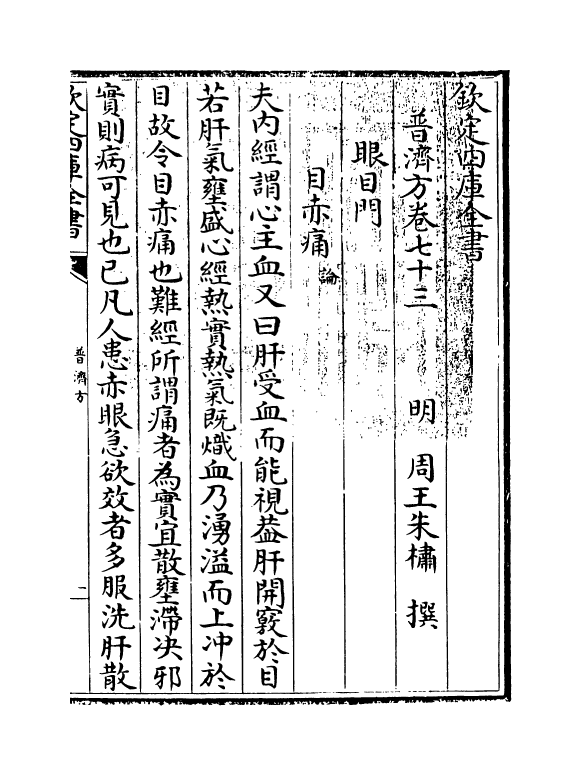 欽定四庫全書
普濟方卷七十三　明　周王朱橚　撰
眼目門
目赤痛論
夫内經謂心主血又曰肝受血而能視葢肝開竅於目
若肝氣壅盛心經熱實熱氣既熾血乃湧溢而上冲於
目故令目赤痛也難經所謂痛者為實宜散壅滯决邪
實則病可見也已凡人患赤眼急欲效者多服洗肝散
欽定四庫全書
普濟方
二